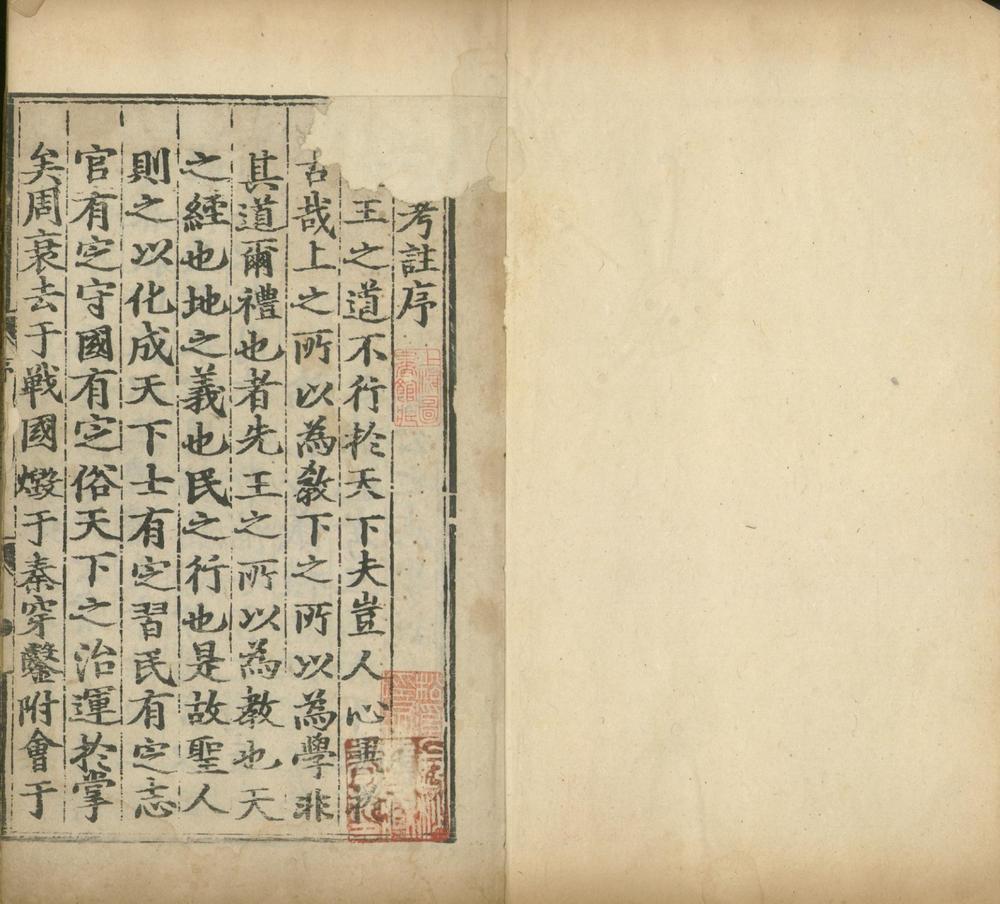 考註序
王之道不行扵天下夫豈人心異扵
古哉上之所以為教下之所以為學非
其道爾禮也者先王之所以為教也天
之經也地之義也民之行也是故聖人
則之以化成天下士有定習民有定志
官有定守國有定俗天下之治運扵掌
矣周衰去于戰國燬于秦穿鑿附會于
上海圖書館藏